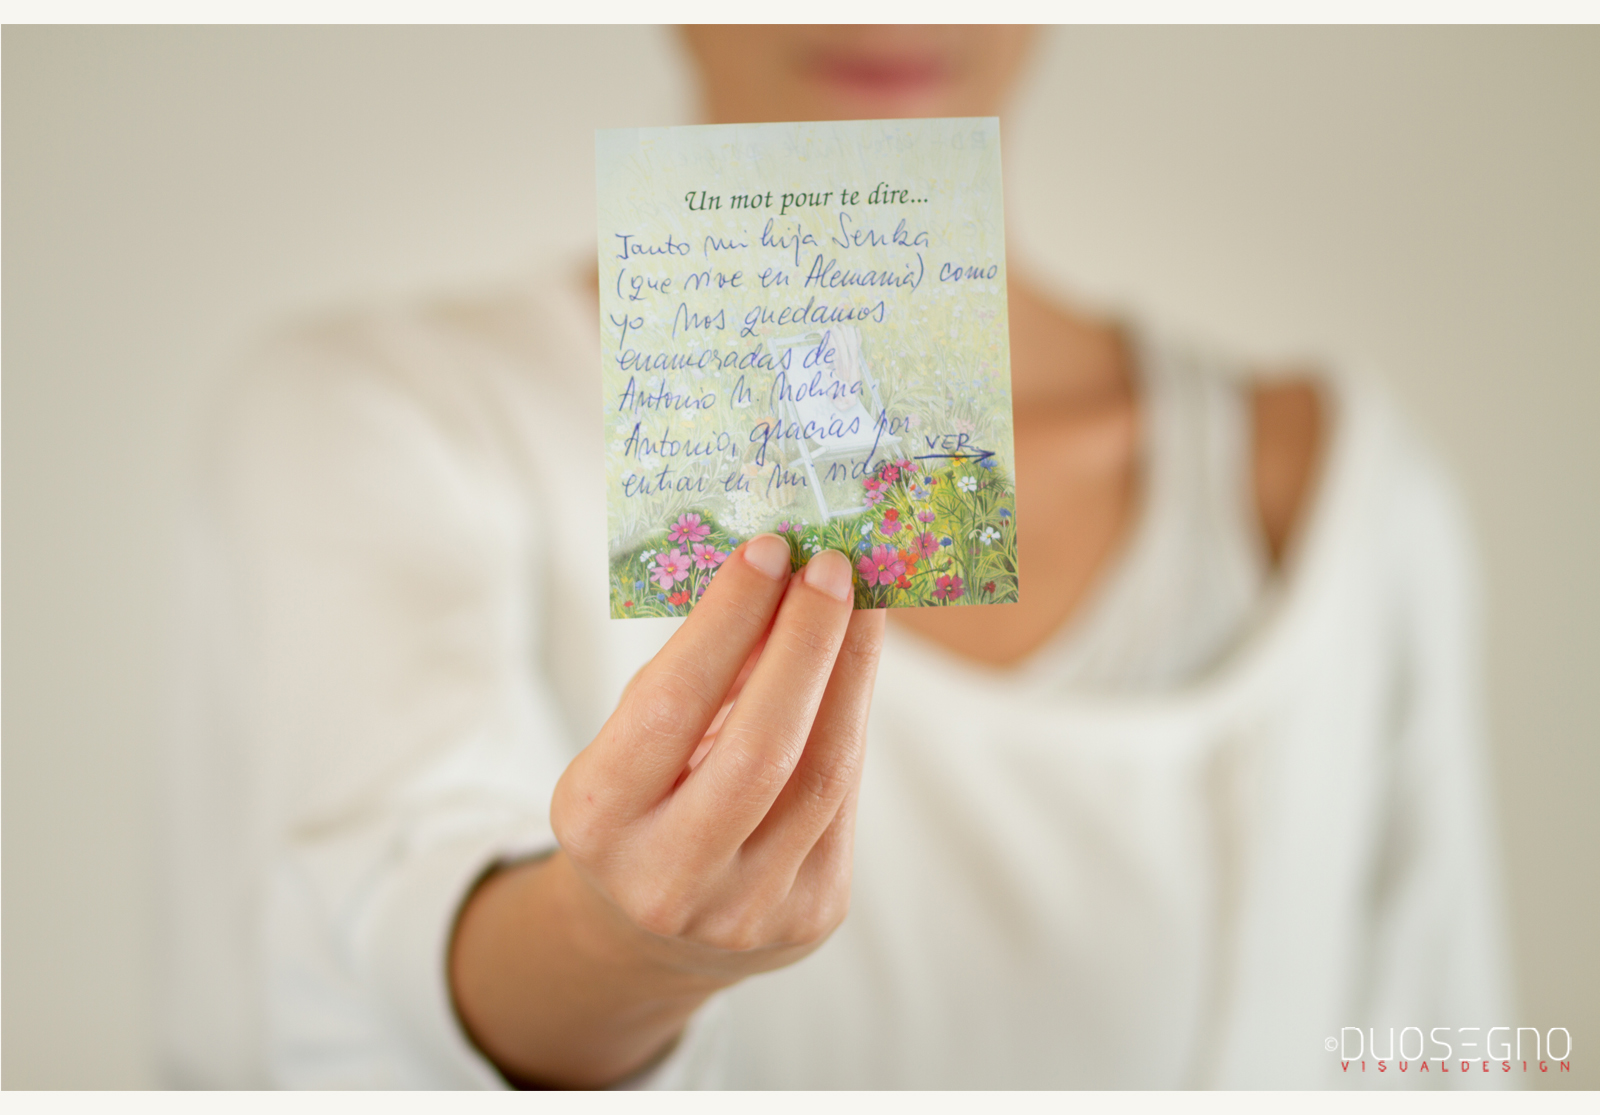 Un mot pour te dire...
Tanto mi hija Senka
(que vive en Alemania) como
yo nos quedamos
enamoradas de
Antonio M. Molina.
Antonio, gracias por
entrar en mi vida.
VER
©DUOSEGNO
VISUALDESIGN